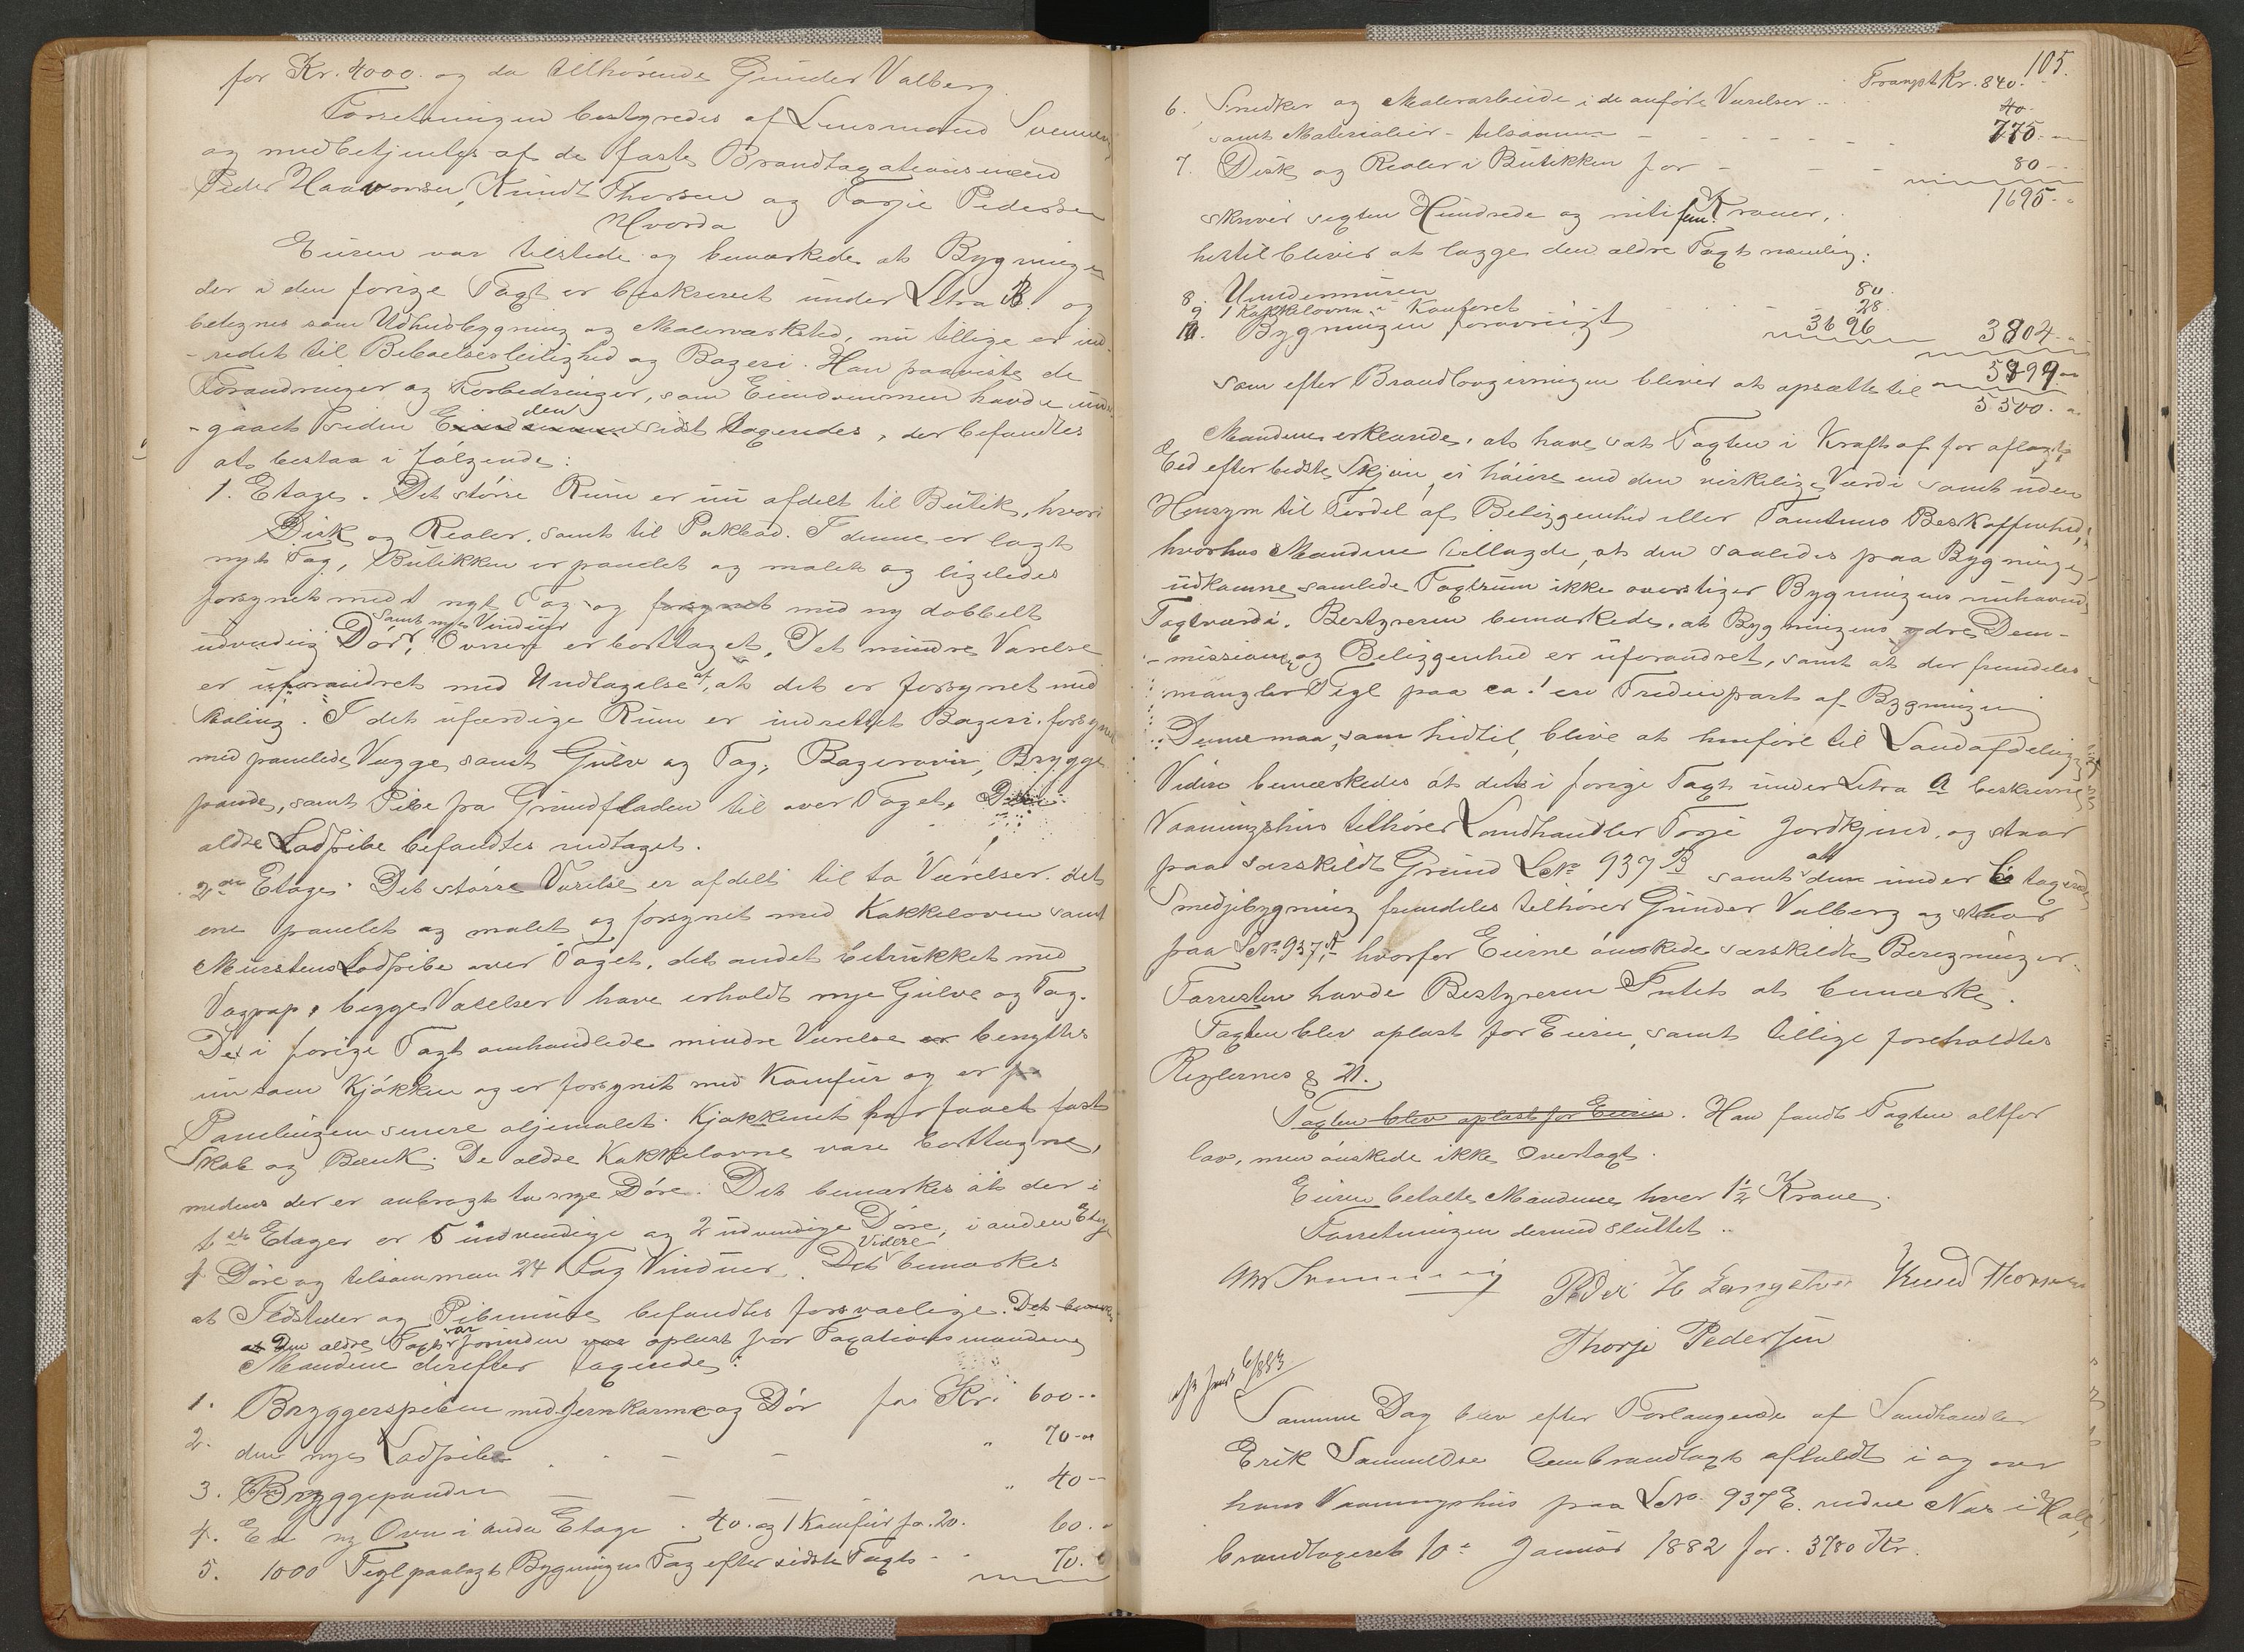 for Kr. 4000. og da tilhørende Gunder Valberg.
Forretningen bestyredes af Lensmand Svenning
og medbetjentes af de faste Brandtaxationsmænd
Peder Haavorsen, Knudt Thorsen og Torje Pedersen
Hvorda
Eieren var tilstede og bemærkede at Bygningen
der i den forige Taxt er beskrevet under Litra B. og
betegnes som Udhusbygning og Malerværksted, nu tillige er ind-
-redet til Beboelsesleilighed og Bageri. Han paaviste de
Forandringer og Forbedringer, som Eiendommen havde und-
-gaaet siden den sidst taxeredes, der befandtes
at bestaa i følgende:
1. Etage. Det større Rum er nu afdelt til Butik, hvori
Disk og Reoler, samt til Pakbod. I denne er lagt
nyt Tag, Butikken er panelet og malet og ligeledes
forsynet med 1 nyt Tag og forsynet med ny dobbelt
samt nye Vinduer
udvendig Dør, Ovnen er borttaget. Det mindre Værelse
er uforandret med Undtagelse af, at det er forsynet med
Maling. I det ufærdige Rum er indrettet Bageri, forsynet
med panelede Vægge samt Gulv og Tag, Bagerovn, Brygge
pande, samt Pibe fra Grundfladen til over Taget. Den
ældre Lodpibe befandtes nedtaget.
2den Etage. Det større Værelse er afdelt til to Værelser. det
ene panelet og malet og forsynet med Kakkelovn samt
Murstens Lodpibe over Taget, det andet betrukket med
Vægpap, begge Værelser have erholdt nye Gulve og Tag.
Det i forige Taxt omhandlede mindre Værelse er benyttes
nu som Kjøkken og er forsynet med Komfur og er
Panelingen senere oljemalet. Kjøkkenet har faaet fast
Skab og Bænk. De ældre Kakkelovne vare borttagne,
medens der er anbragt to nye Døre. Det bemærkes at der i
1ste Etage er 5 indvendige og 2 udvendige Døre, i anden Etage
Videre
4 Døre og tilsammen 24 Fag Vinduer. Det bemærkes
at Ildsteder og Pibemure befandtes forsvarlige. Det bemærkes
at Den ældre Taxt var forinden var oplæst for Taxationsmændene
Mændene derefter taxerede:
1. Bryggerspiben med Jernkarme og Dør for Kr. 600 --
2. den nye Lodpibe - - - " 70 --
3. Bryggepanden - - - " 40 --
4. En ny Ovn i anden Etage . 40. og 1 Komfur for 20. 60. "
5. 1000 Tegl paalagt Bygningens Tag efter sidste Taxt - - 70.
105.
Transpt Kr. 840.
6. Snedker og Malerarbeide i de anførte Værelser --
40
samt Materialier - tilsammen - - - - - - 775 --
7. Disk og Reoler i Butikken for - - - 80 --
1695 - "
skriver sexten Hundrede og nitifem Kroner,
hertil bliver at lægge den ældre Taxt nemlig:
8. Undermuren 80.
9. 1 Kakkelovn i Kontoret - - 28
10. Bygningen forøvrigt 3696 3804 - "
5499 --
som efter Brandlovgivningen bliver at opsætte til
5500. "
Mændene erklærede, at have sat Taxten i Kraft af før aflagte
Eed efter bedste Skjøn, ei høiere end den virkelige Værdi samt uden
Hensyn til Fordel af Beliggenhed eller Tomtens Beskaffenhed,
hvorhos Mændene tillagde, at den saaledes paa Bygningen
udkomne samlede Taxtsum ikke overstiger Bygningens nuhavende
Taxtværdi. Bestyreren bemærkede, at Bygningens ydre Dem-
-mission og Beliggenhed er uforandret, samt at der fremdeles
mangler Tegl paa ca. en Trediepart af Bygningen
Denne maa, som hidtil, blive at henføre til Landafdeling
Videre bemærkedes at det i forige Taxt under Litra a beskrevne
Vaaningshus tilhører Landhandler Torje Jordkjend, og staar
paa særskildt Grund LNo 937 B samt at den under C taxerede
Smedjebygning fremdeles tilhører Gunder Valberg og staar
paa LNo 937, A hvorfor Eierne ønskede særskildte Beregninger.
Forresten havde Bestyreren Intet at bemærke.
Taxten blev oplæst for Eieren, samt tillige foreholdtes
Reglernes § 21.
Taxten blev oplæst for Eieren. Han fandt Taxten altfor
lav, men ønskede ikke Overtaxt.
Eieren betalte Mændene hver 1 1/2 Krone.
Forretningen dermed sluttet --
Svenning Peder H Langetved Knud Thorsen
Thorje Pedersen
6/1883
Samme Dag blev efter Forlangende af Landhandler
Erik Samuelsen Ombrandtaxt afholdt i og over
hans Vaaningshus paa LNo. 937 E. nedre Næs i Holt,
brandtaxeret 10de Januar 1882 for 3780 Kr.